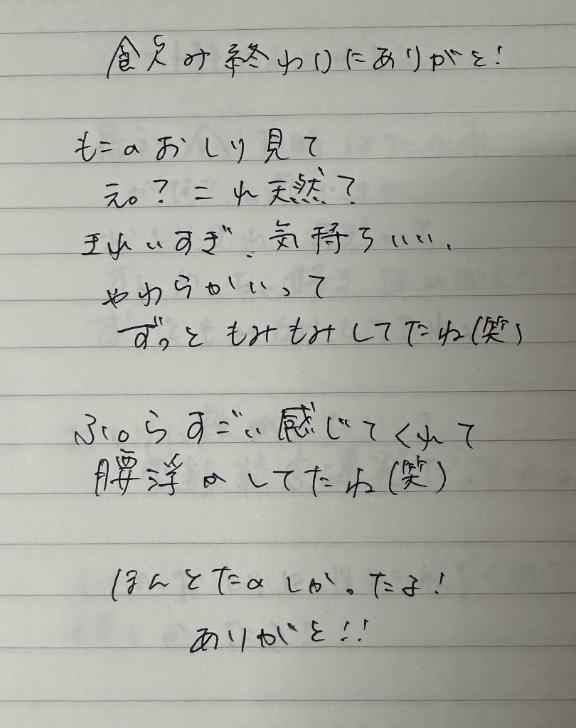 飲み終わりにありがと!
もものおしり見て
え。?これ天然?
きれいすぎ、気持ちいい、
やわらかいって
ずっともみもみしてたね(笑)
すごい感じてくれて
腰浮かしてたね(笑)
ほんとたのしかったよ!
ありがと!!